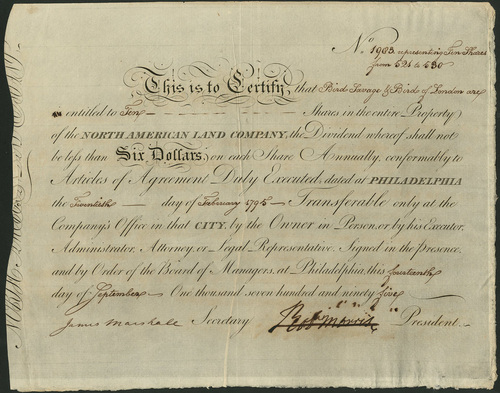 No 1903 representing Ten Shares
from 521 to 530
This is to Certify, that Bird Savage & Bird of London are
entitled to Ten Shares in the entire Property
of the NORTH AMERICAN LAND COMPANY, the Dividend whereof shall not
be less than Six Dollars, on each Share Annually, conformably to
Articles of Agreement Duly Executed, dated at PHILADELPHIA
the Twentieth day of February 1795 Transferable only at the
Company's Office in that CITY, by the Owner in Person, or by his Executor,
Administrator, Attorney, or Legal Representative. Signed in the presence,
and by Order of the Board of Managers, at Philadelphia, this fourteenth
day of September One thousand seven hundred and ninety five
James Marshall Secretary Robt Morris President